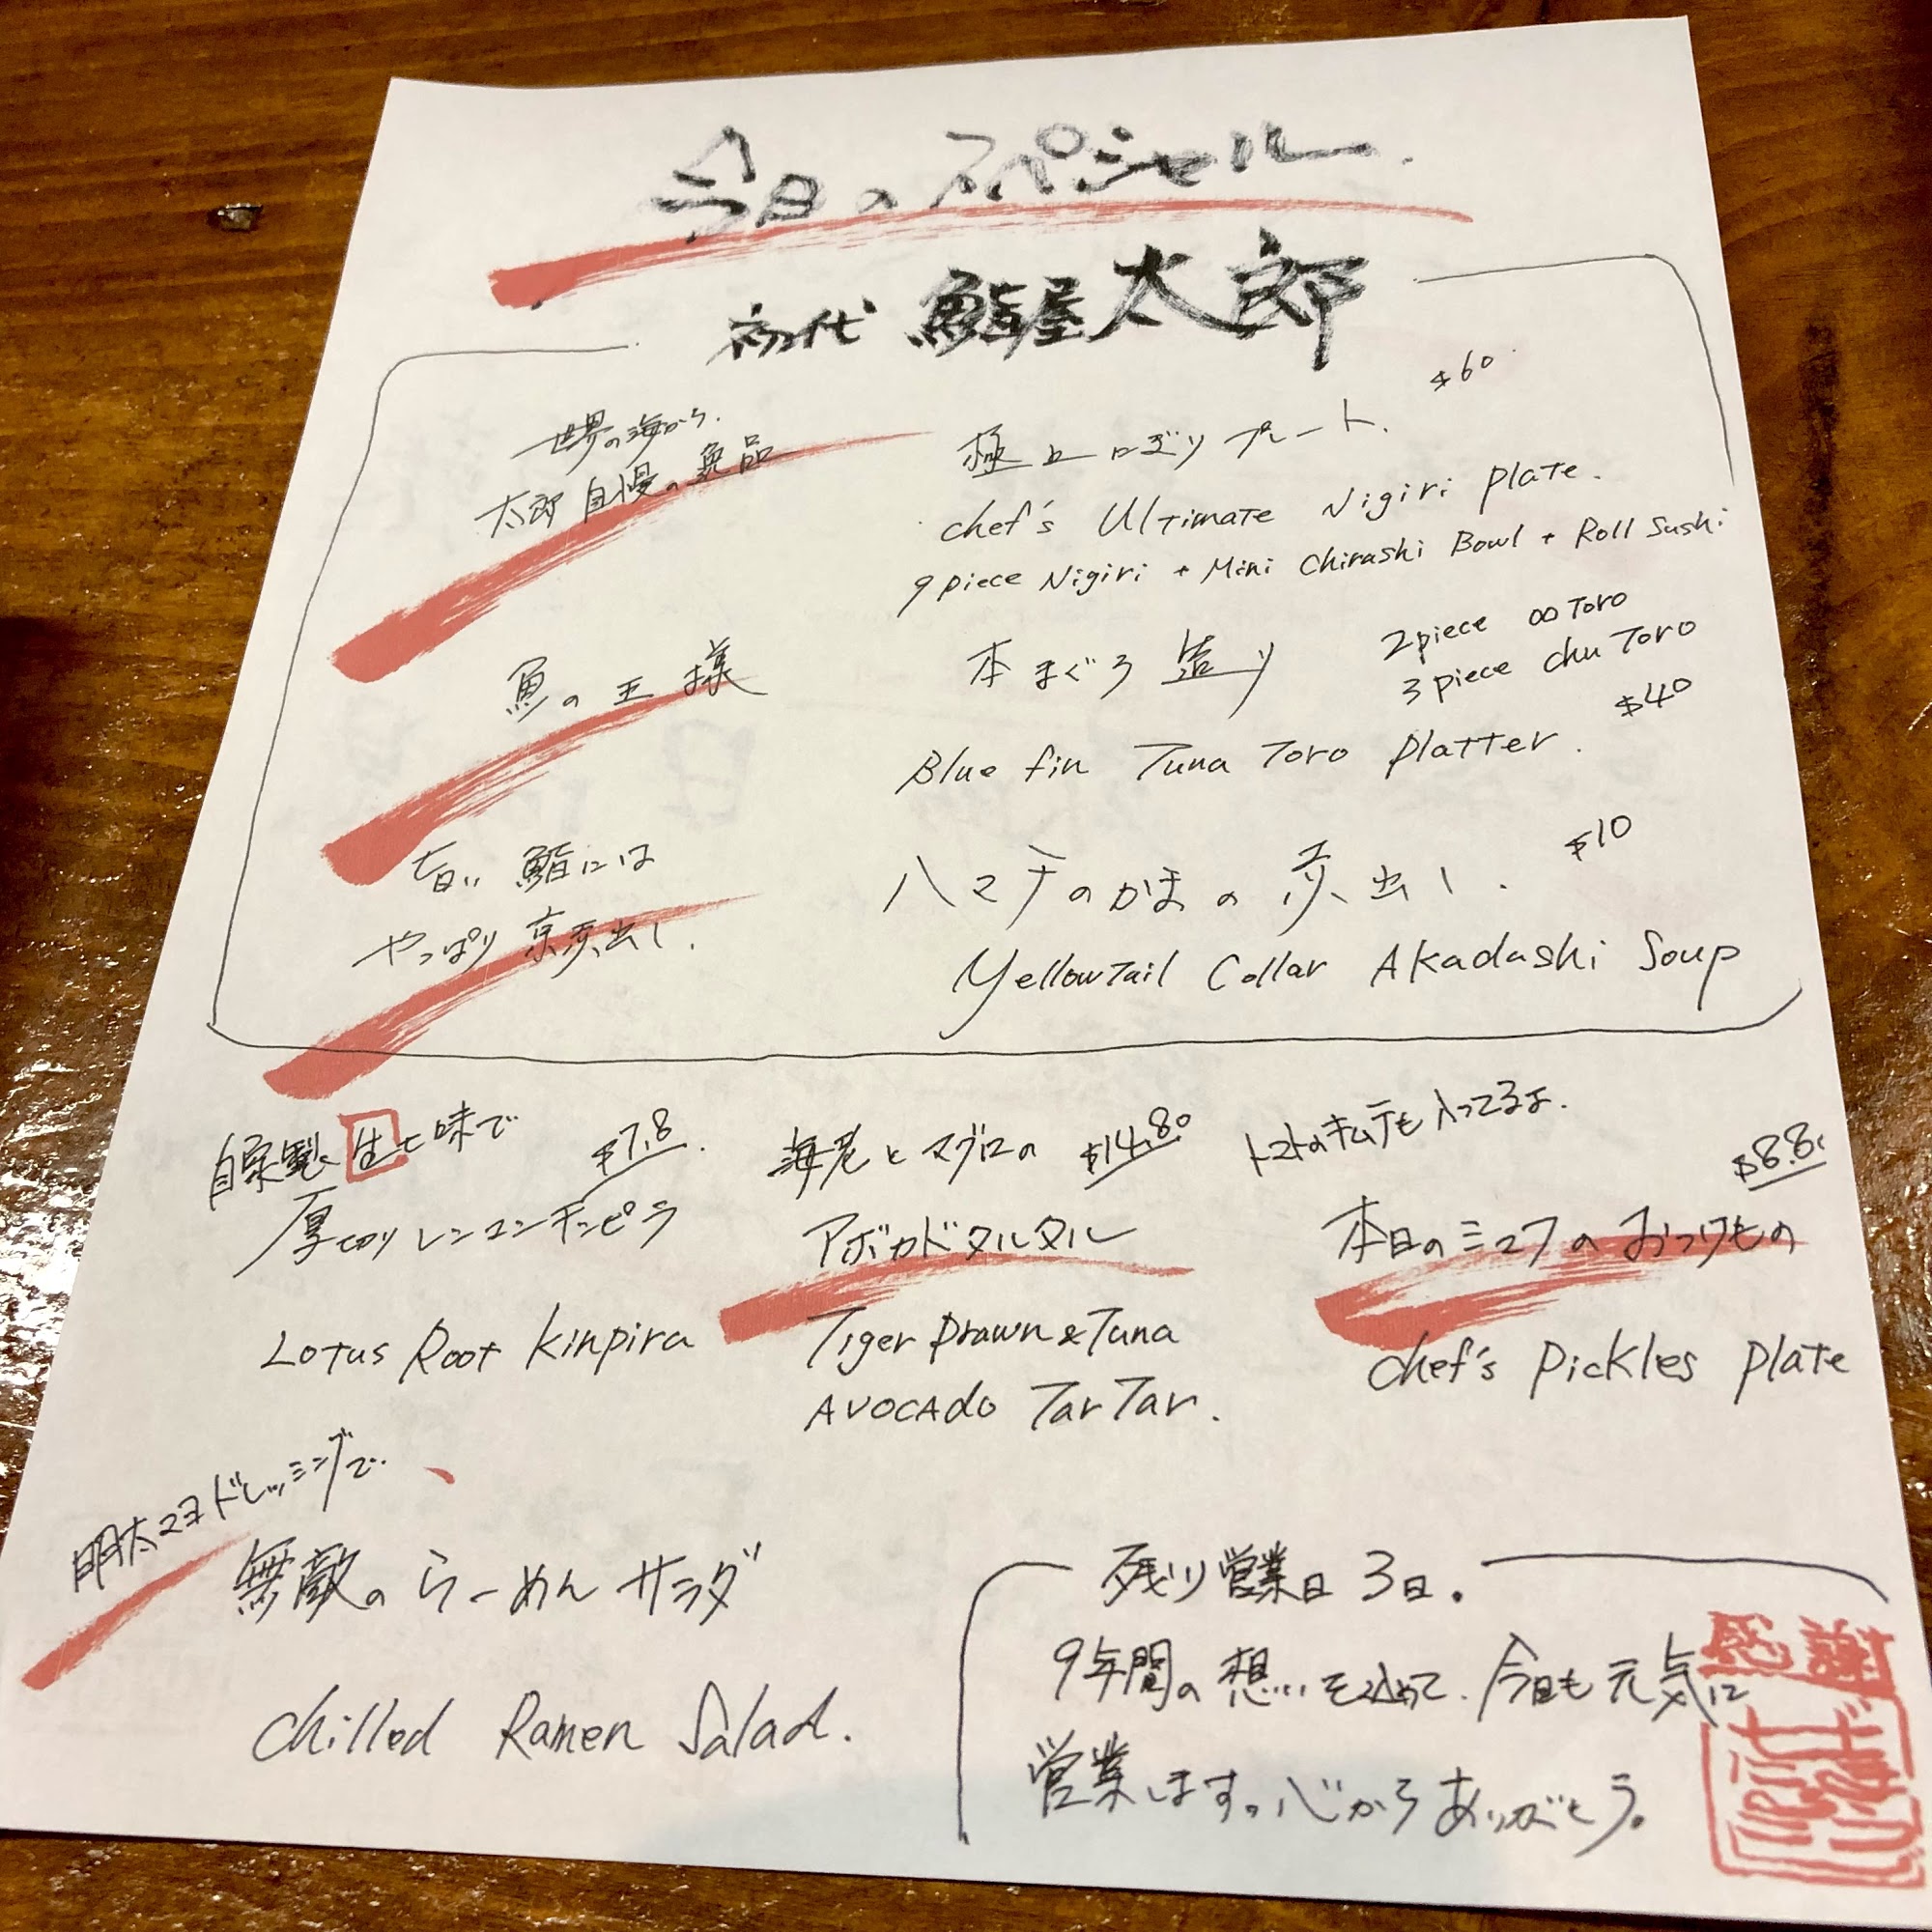 今日のスペシャル.
初代 鮨屋太郎
世界の海から.
太郎自慢の逸品
極上にぎりプレート. $60
chef's Ultimate Nigiri plate.
9 piece Nigiri + Mini Chirashi Bowl + Roll Sushi
魚の王様
本まぐろ造り
2piece oo Toro
3 piece chu Toro
$40
Blue fin Tuna Toro platter.
旨い鮨には
やっぱり京赤出し.
ハマチのかまの赤出し. $10
Yellowtail Collar Akadashi Soup
自家製生七味で $7.8.
厚切りレンコンキンピラ
Lotus Root Kinpira
海老とマグロの $14.80
アボカドタルタル
Tiger prawn & Tuna
Avocado TarTar.
トマトのキムチも入ってるよ.
$8.8.
本日のシェフのおつけもの
chef's pickles plate
明太マヨドレッシングで.
無敵のらーめんサラダ
Chilled Ramen Salad.
残り営業日3日。
9年間の想いを込めて.今日も元気に
営業します。心からありがとう。
感謝